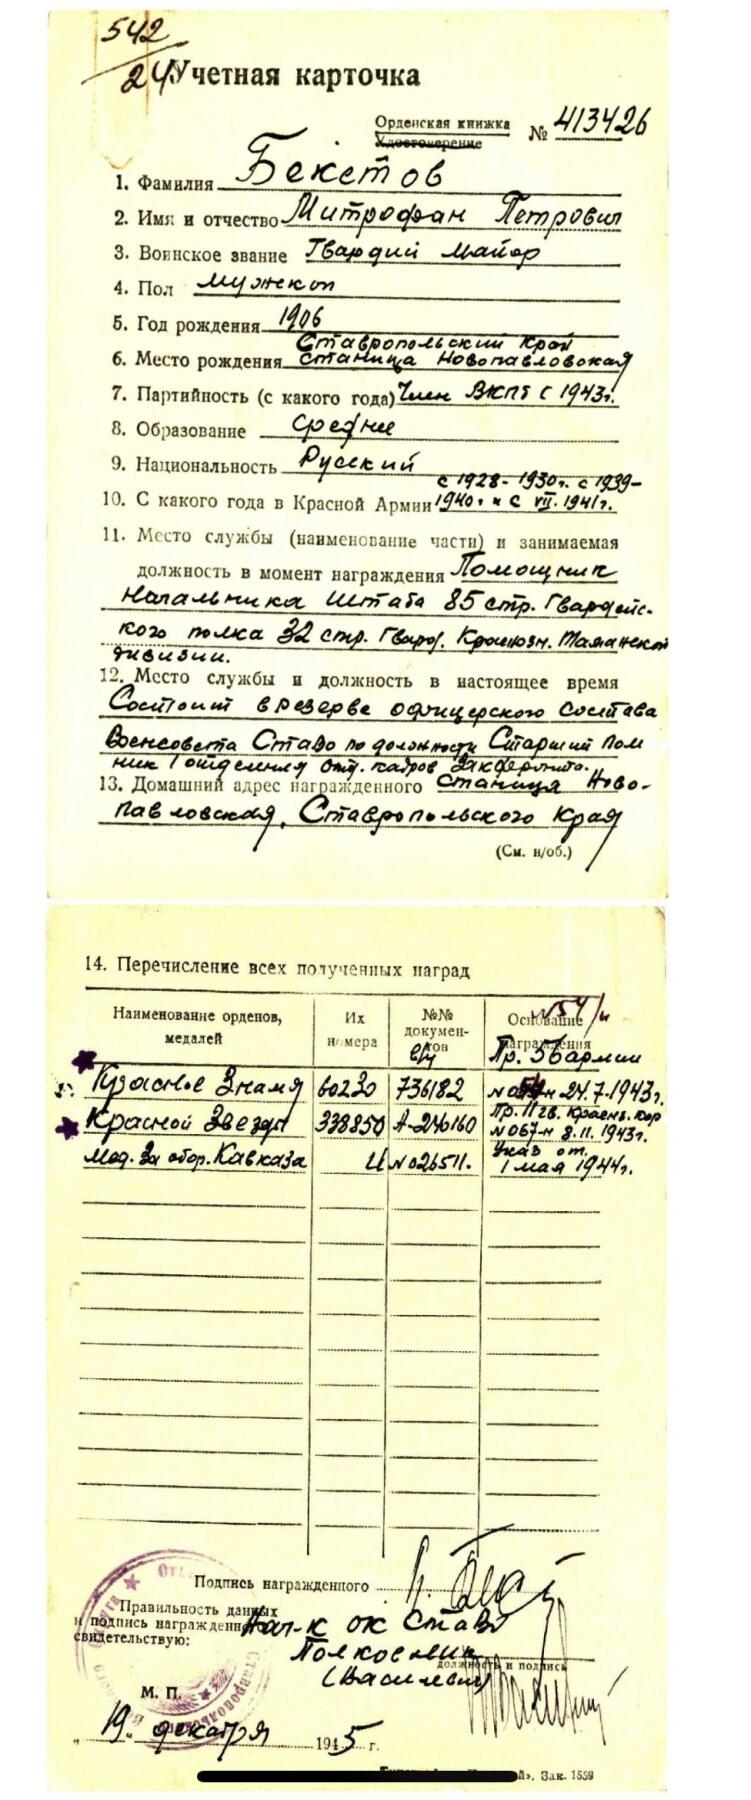 542
24
Учетная карточка
Орденская книжка № 413426
Удостоверение
1. Фамилия Бекетов
2. Имя и отчество Митрофан Петрович
3. Воинское звание Гвардий Майор
4. Пол мужской
5. Год рождения 1906
Ставропольский Край
6. Место рождения станица Новопавловская
7. Партийность (с какого года) Член ВКПб с 1943г.
8. Образование среднее
9. Национальность Русский
с 1928-1930г. с 1939-
10. С какого года в Красной Армии 1940г и с VII. 1941г.
11. Место службы (наименование части) и занимаемая
должность в момент награждения Помощник
Начальника Штаба 85 стр. Гвардейс-
кого полка 32 стр. Гвард. Краснозн. Таманской
дивизии.
12. Место службы и должность в настоящее время
Состоит в резерве офицерского состава
Военсовета СтавО по должности Старший Пом
ник 1 отделения отд. кадров Закфронта.
13. Домашний адрес награжденного станица Ново-
павловская, Ставропольского Края
(См. н/об.)
14. Перечисление всех полученных наград
Наименование орденов, медалей
Их номера
№№ документов
Основание награждения
№54/н
б/н Пр. 56 армии
Красное Знамя 60230 736182 24.7.1943г.
Красной Звезды 338850 А-246160 Пр. 11 гв. красн. кор
№067-н 8.11.1943г.
Мед. За обор. Кавказа И №026511. Указ от
1 мая 1944г.
Подпись награжденного
Правильность данных
и подпись награжденного Нач-к ОК СтавО
свидетельствую: Полковник
должность и подпись
(Василевич)
М. П.
„ 19 „ декабря 1945 г.
Зак. 1559